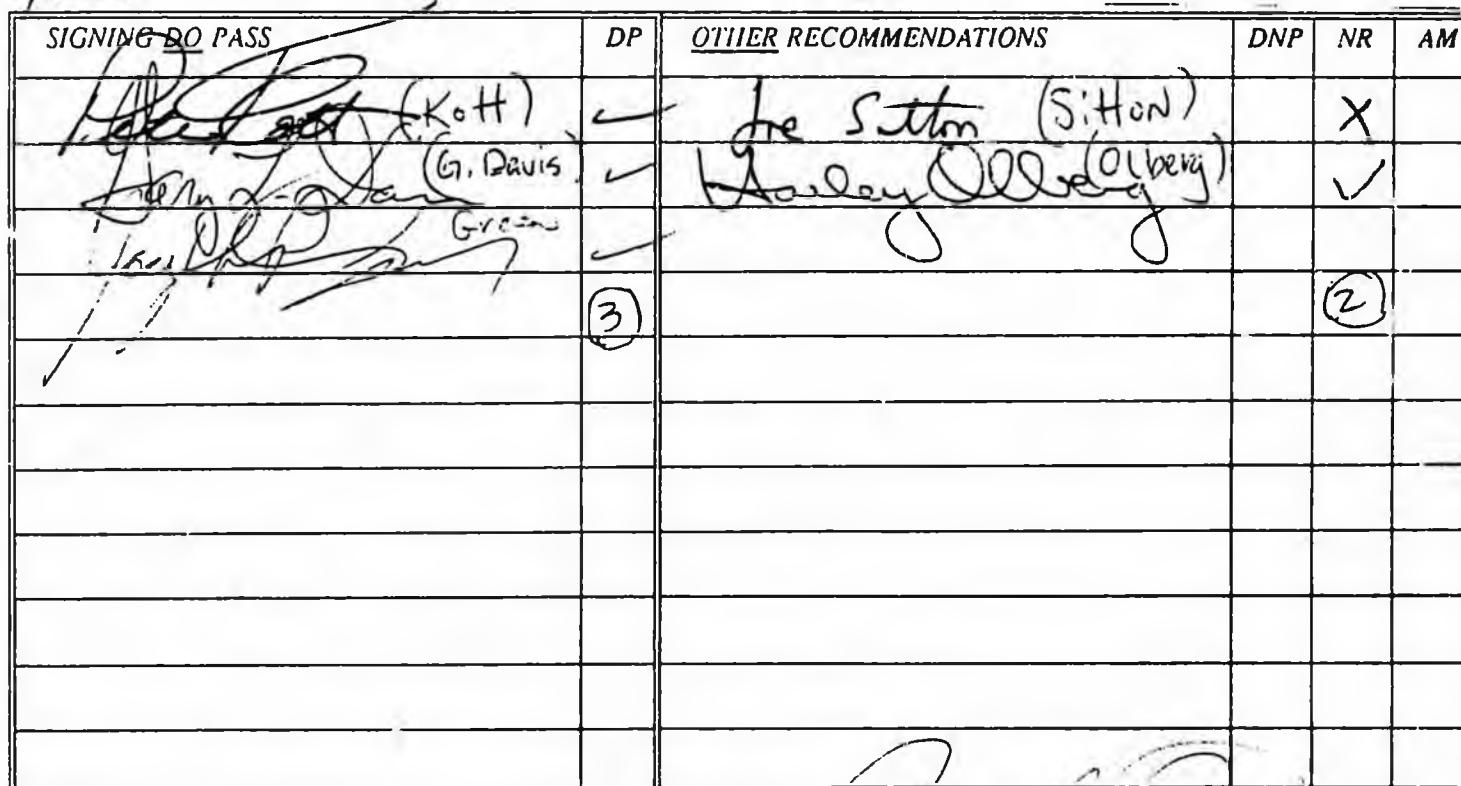 SIGNING DO PASS DP OTHER RECOMMENDATIONS DNP NR AM
(Kott) ✓ Joe Sitton (Sitton) X
(G. Davis) ✓ Harley Olberg (Olberg) ✓
Green ✓
3 2